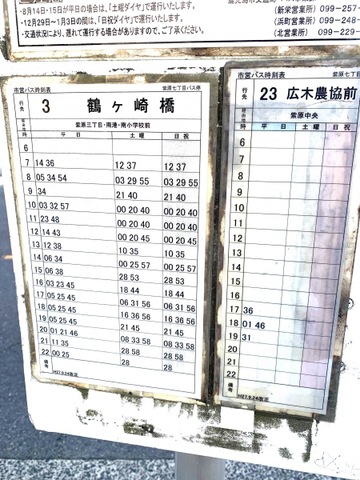 -8月14・15日が平日の場合は、「土曜ダイヤ」で運行します。
-12月29日〜1月3日の間は、「日祝ダイヤ」で運行します。
・交通状況により、遅れて運行する場合がありますので、ご了承ください。
(新栄営業所) 099-257
(浜町営業所) 099-248
(北営業所) 099-229
市営バス時刻表 紫原七丁目バス停
行先 3 鶴ヶ崎橋
紫原三丁目・南港・南小学校前
平日 土曜 日祝
6
7 14 36 12 37 12 37
8 05 34 54 03 29 55 03 29 55
9 34 21 40 21 40
10 03 32 57 00 20 40 00 20 40
11 23 48 00 20 40 00 20 40
12 14 43 00 20 45 00 20 45
13 12 38 10 35 10 35
14 06 34 00 25 57 00 25 57
15 06 38 28 53 28 53
16 03 23 45 18 44 18 44
17 05 25 45 06 31 56 06 31 56
18 05 25 45 16 36 56 16 36 56
19 05 25 45 21 45 21 45
20 01 21 46 08 33 58 08 33 58
21 11 35 28 58 28 58
22 00 25 28 28
備考 H27.9.24改正
市営バス時刻表 紫原七丁
行先 23 広木農協前
紫原中央
平日
6
7
8
9
10
11
12
13
14
15
16
17 36
18 01 46
19 31
20
21
22
備考 H27.9.24改正